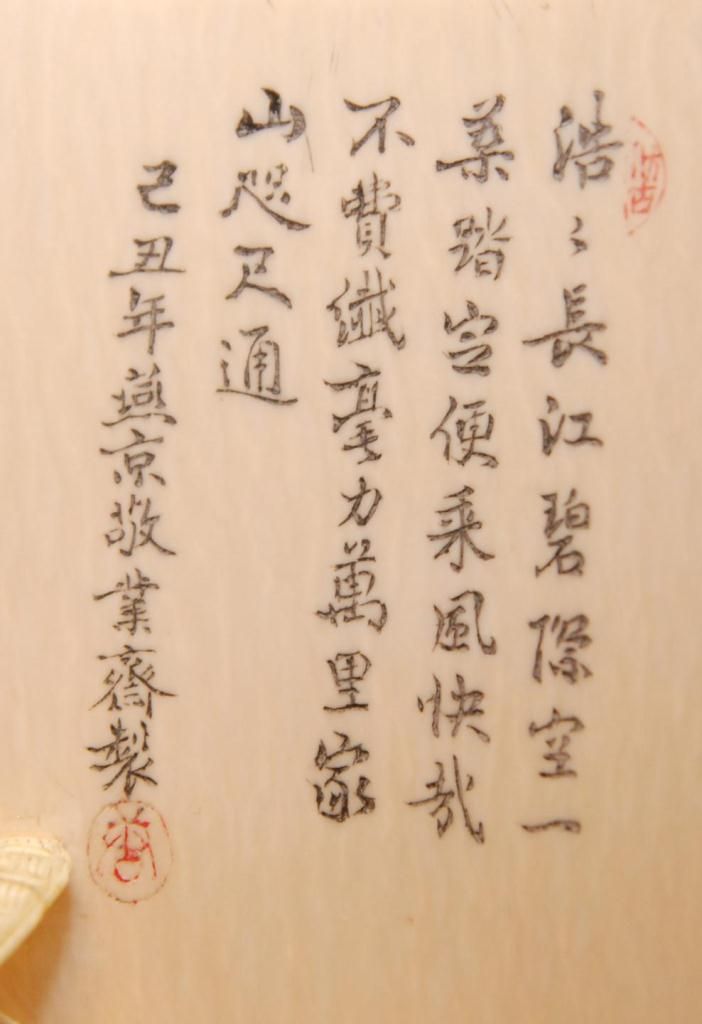 浩〻長江碧際空一
葉踏空便乘風快哉
不費纖毫力萬里家
山咫尺通
己丑年燕京敬業齋製